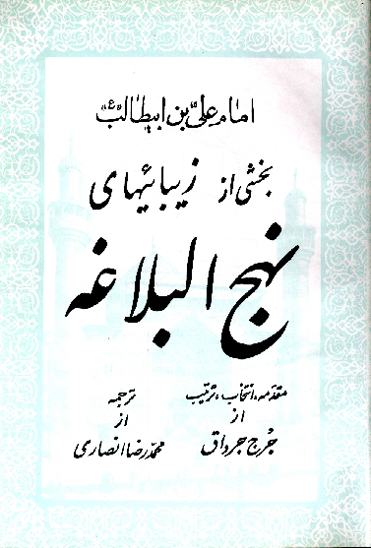 امام علی بن ابیطالب "ع"
بخشی از زیبائیهای
نهج البلاغه
مقدمه، انتخاب، ترتیب
از
جُرج جرداق
ترجمه
از
محمد رضا انصاری